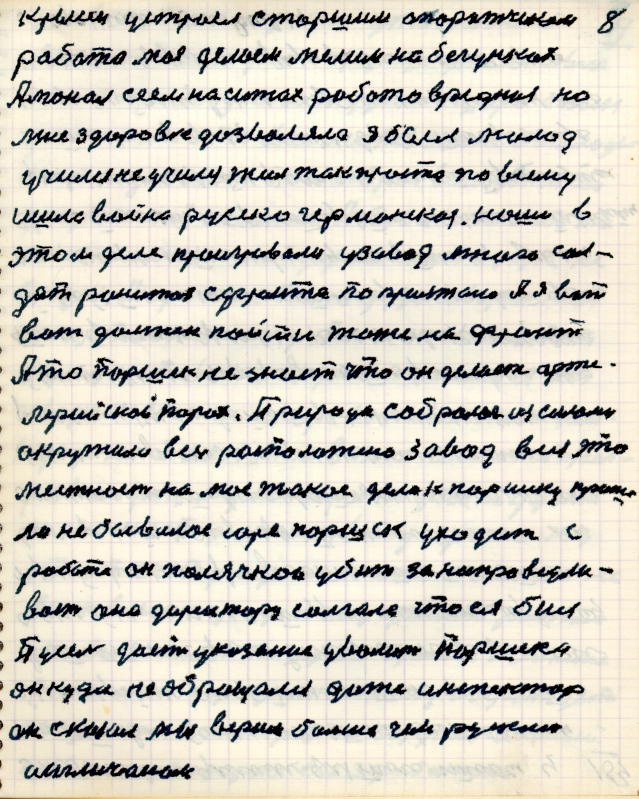 устроен старшим апаратчиком 8
работа моя делаем мелим на бегунках
Амонал сеем на ситах работа вредная но
мне здоровье дозваляло я был молод
учился не учился жил так проста по всему
шила война руско германская. наши в
этом деле проигравали узавод много сол-
дат раитов с фронта по приежало А я вот
вот должен пойти тоже на фронт
А то Поршик не знает что он делает арти-
лерийской Порох. Природа собралась
окружила все расположено завод вся это
местност на мое такое дела к поршику
ла не бывалое горе поршек уходит с
работы он полячкой убит
ват она директору солгала что ся бил
Пусел дает указание уволит Поршека
он куда не обращался даже инспектор
он сказал мы верим больше чем руским
англичанам